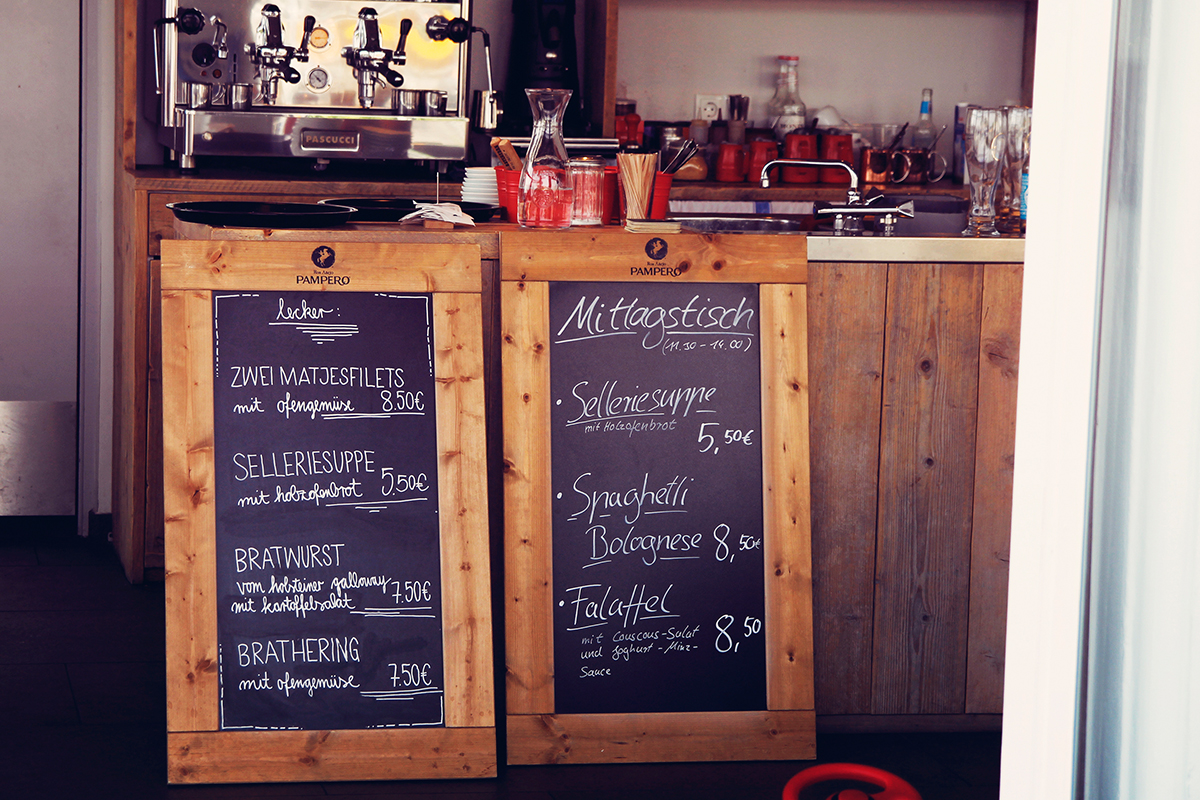 PASCUCCI
Ron Añejo
PAMPERO
lecker:
ZWEI MATJESFILETS
mit ofengemüse 8.50€
SELLERIESUPPE
mit holzofenbrot 5.50€
BRATWURST
vom holsteiner galloway
mit kartoffelsalat 7.50€
BRATHERING
mit ofengemüse 7.50€
Ron Añejo
PAMPERO
Mittagstisch
(11.30 - 14.00)
• Selleriesuppe
mit Holzofenbrot
5,50€
• Spaghetti
Bolognese 8,50€
• Falaffel
mit Couscous-Salat
und Joghurt-Minz-
Sauce
8,50